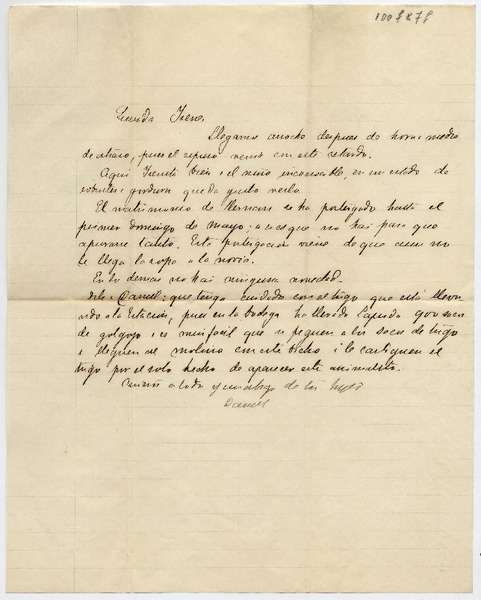 1008878
Querida Irene.
Llegamos anoche despues de hora i media
de atraso, pues el espreso venia con este retardo.
Aqui Vicente bien i el nino incansable, en un estado de
robustez i gordura que da gusto verlo.
El matrimonio de Hernan se ha postergado hasta el
primer domingo de mayo; asi es que no hai para que
apurarse tanto. Esta postergacion viene de que aun no
le llega la ropa a la novia.
En lo demas no hai ninguna novedad.
Dile a Daniel: que tenga cuidado con el trigo que está llevan
do a la Estacion, pues en la bodega ha llevado 900 sacos
de gorgojo i es mui facil que se peguen a los sacos de trigo
i lleguen al molino con este bicho i le castiguen el
trigo por el solo hecho de aparecer este animalito.
a todos y un abrazo de tu
Daniel